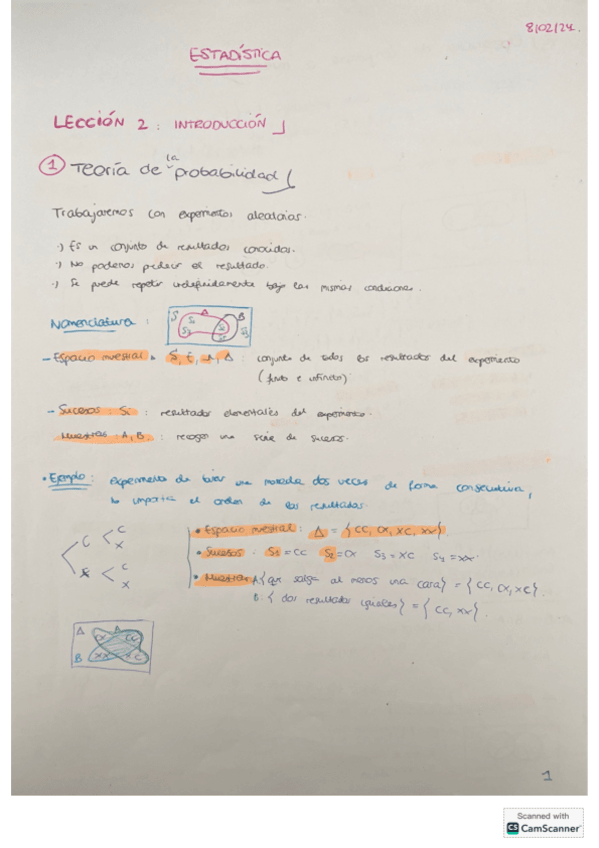 8/02/24.
ESTADÍSTICA
LECCIÓN 2: INTRODUCCIÓN
1 Teoría de la probabilidad
Trabajaremos con experimentos aleatorios.
·) Es un conjunto de resultados conocidos.
·) No podemos predecir el resultado.
·) Se puede repetir indefinidamente bajo las mismas condiciones.
Nomenclatura:
S A B
S1
S2 S3
- Espacio muestral S, E, Δ: conjunto de todos los resultados del experimento
(finito e infinito)
- Sucesos: Si: resultados elementales del experimento.
Muestras: A, B: recogen una serie de sucesos.
• Ejemplo: experimento de tirar una moneda dos veces de forma consecutiva,
importa el orden de los resultados.
C C
X
X C
X
• Espacio muestral: Δ = {CC, CX, XC, XX}
• Sucesos: S1 = CC S2 = CX S3 = XC S4 = XX
• Muestras A{que salga al menos una cara} = {CC, CX, XC}.
B: {dos resultados iguales} = {CC, XX}
Δ A
CX CC
B XX XC
1
Scanned with
CS CamScanner